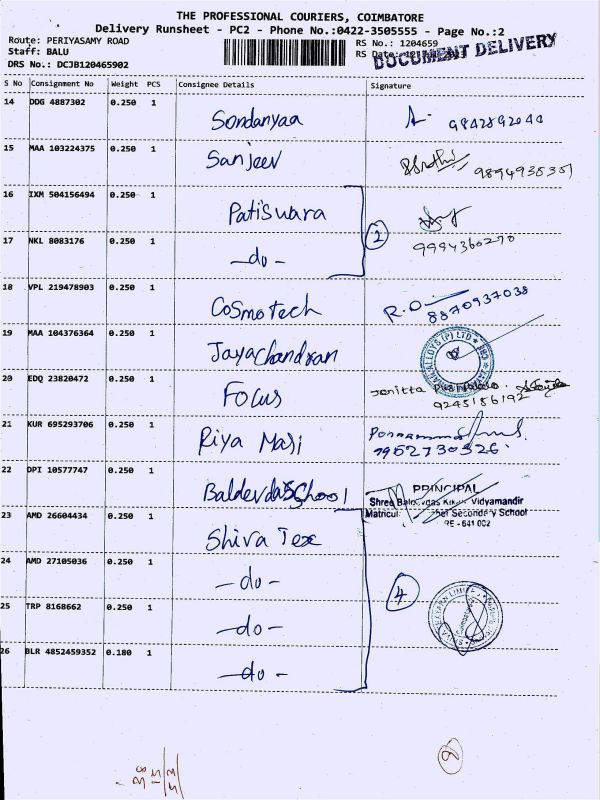 THE PROFESSIONAL COURIERS, COIMBATORE
Delivery Runsheet - PC2 - Phone No.:0422-3505555 - Page No.:2
Route: PERIYASAMY ROAD
RS No.: 1204659
Staff: BALU
RS Date:
DOCUMENT DELIVERY
DRS No.: DCJB120465902
S No Consignment No Weight PCS Consignee Details Signature
14 DDG 4887302 0.250 1 Sondanyaa 9842892044
15 MAA 103224375 0.250 1 Sanjeev 9894935351
16 IXM 504156494 0.250 1 Patiswara
2
17 NKL 8083176 0.250 1 -do- 9994360270
18 VPL 219478903 0.250 1 Cosmotech R.O 8870937038
19 MAA 104376364 0.250 1 Jayachandran
ALLOYS (P) LTD
20 EDQ 23820472 0.250 1 Focus Jenitta
9245156192
21 KUR 695293706 0.250 1 Riya Masi
9952730326
22 DPI 10577747 0.250 1 Baldevdas School PRINCIPAL
Shree Vidyamandir
Secondary School
641 002
23 AMD 26604434 0.250 1 Shiva Tex
24 AMD 27105036 0.250 1 -do-
4
25 TRP 8168662 0.250 1 -do-
26 BLR 4852459352 0.180 1 -do-